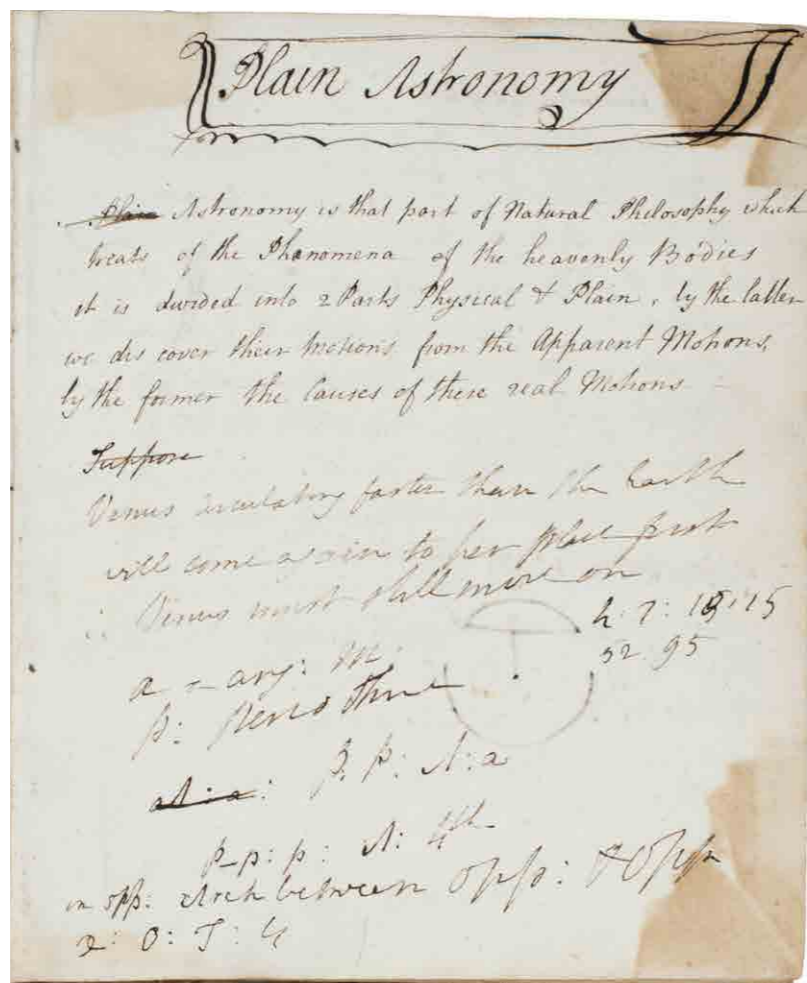 Plain Astronomy
Plain Astronomy is that part of Natural Philosophy which
treats of the Phænomena of the heavenly Bodies
it is divided into 2 Parts Physical & Plain, by the latter
we dis cover their Motions from the Apparent Motions,
by the former the Causes of these real Motions
Suppose
Venus circulating faster than the Earth
will come again to her place first
∴ Venus must still move on
h: 7: 15
52. 95
a = ang: m:
p:
P: p: A: a
P-p: p: A: 4th
in opp: Arch between opps: & Opps